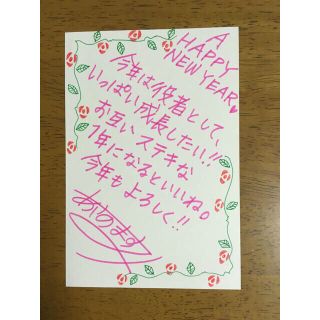 A
HAPPY
NEW YEAR♥
今年は役者として、
いっぱい成長したい!!
お互いステキな
1年になるといいね。
今年もよろしく!!